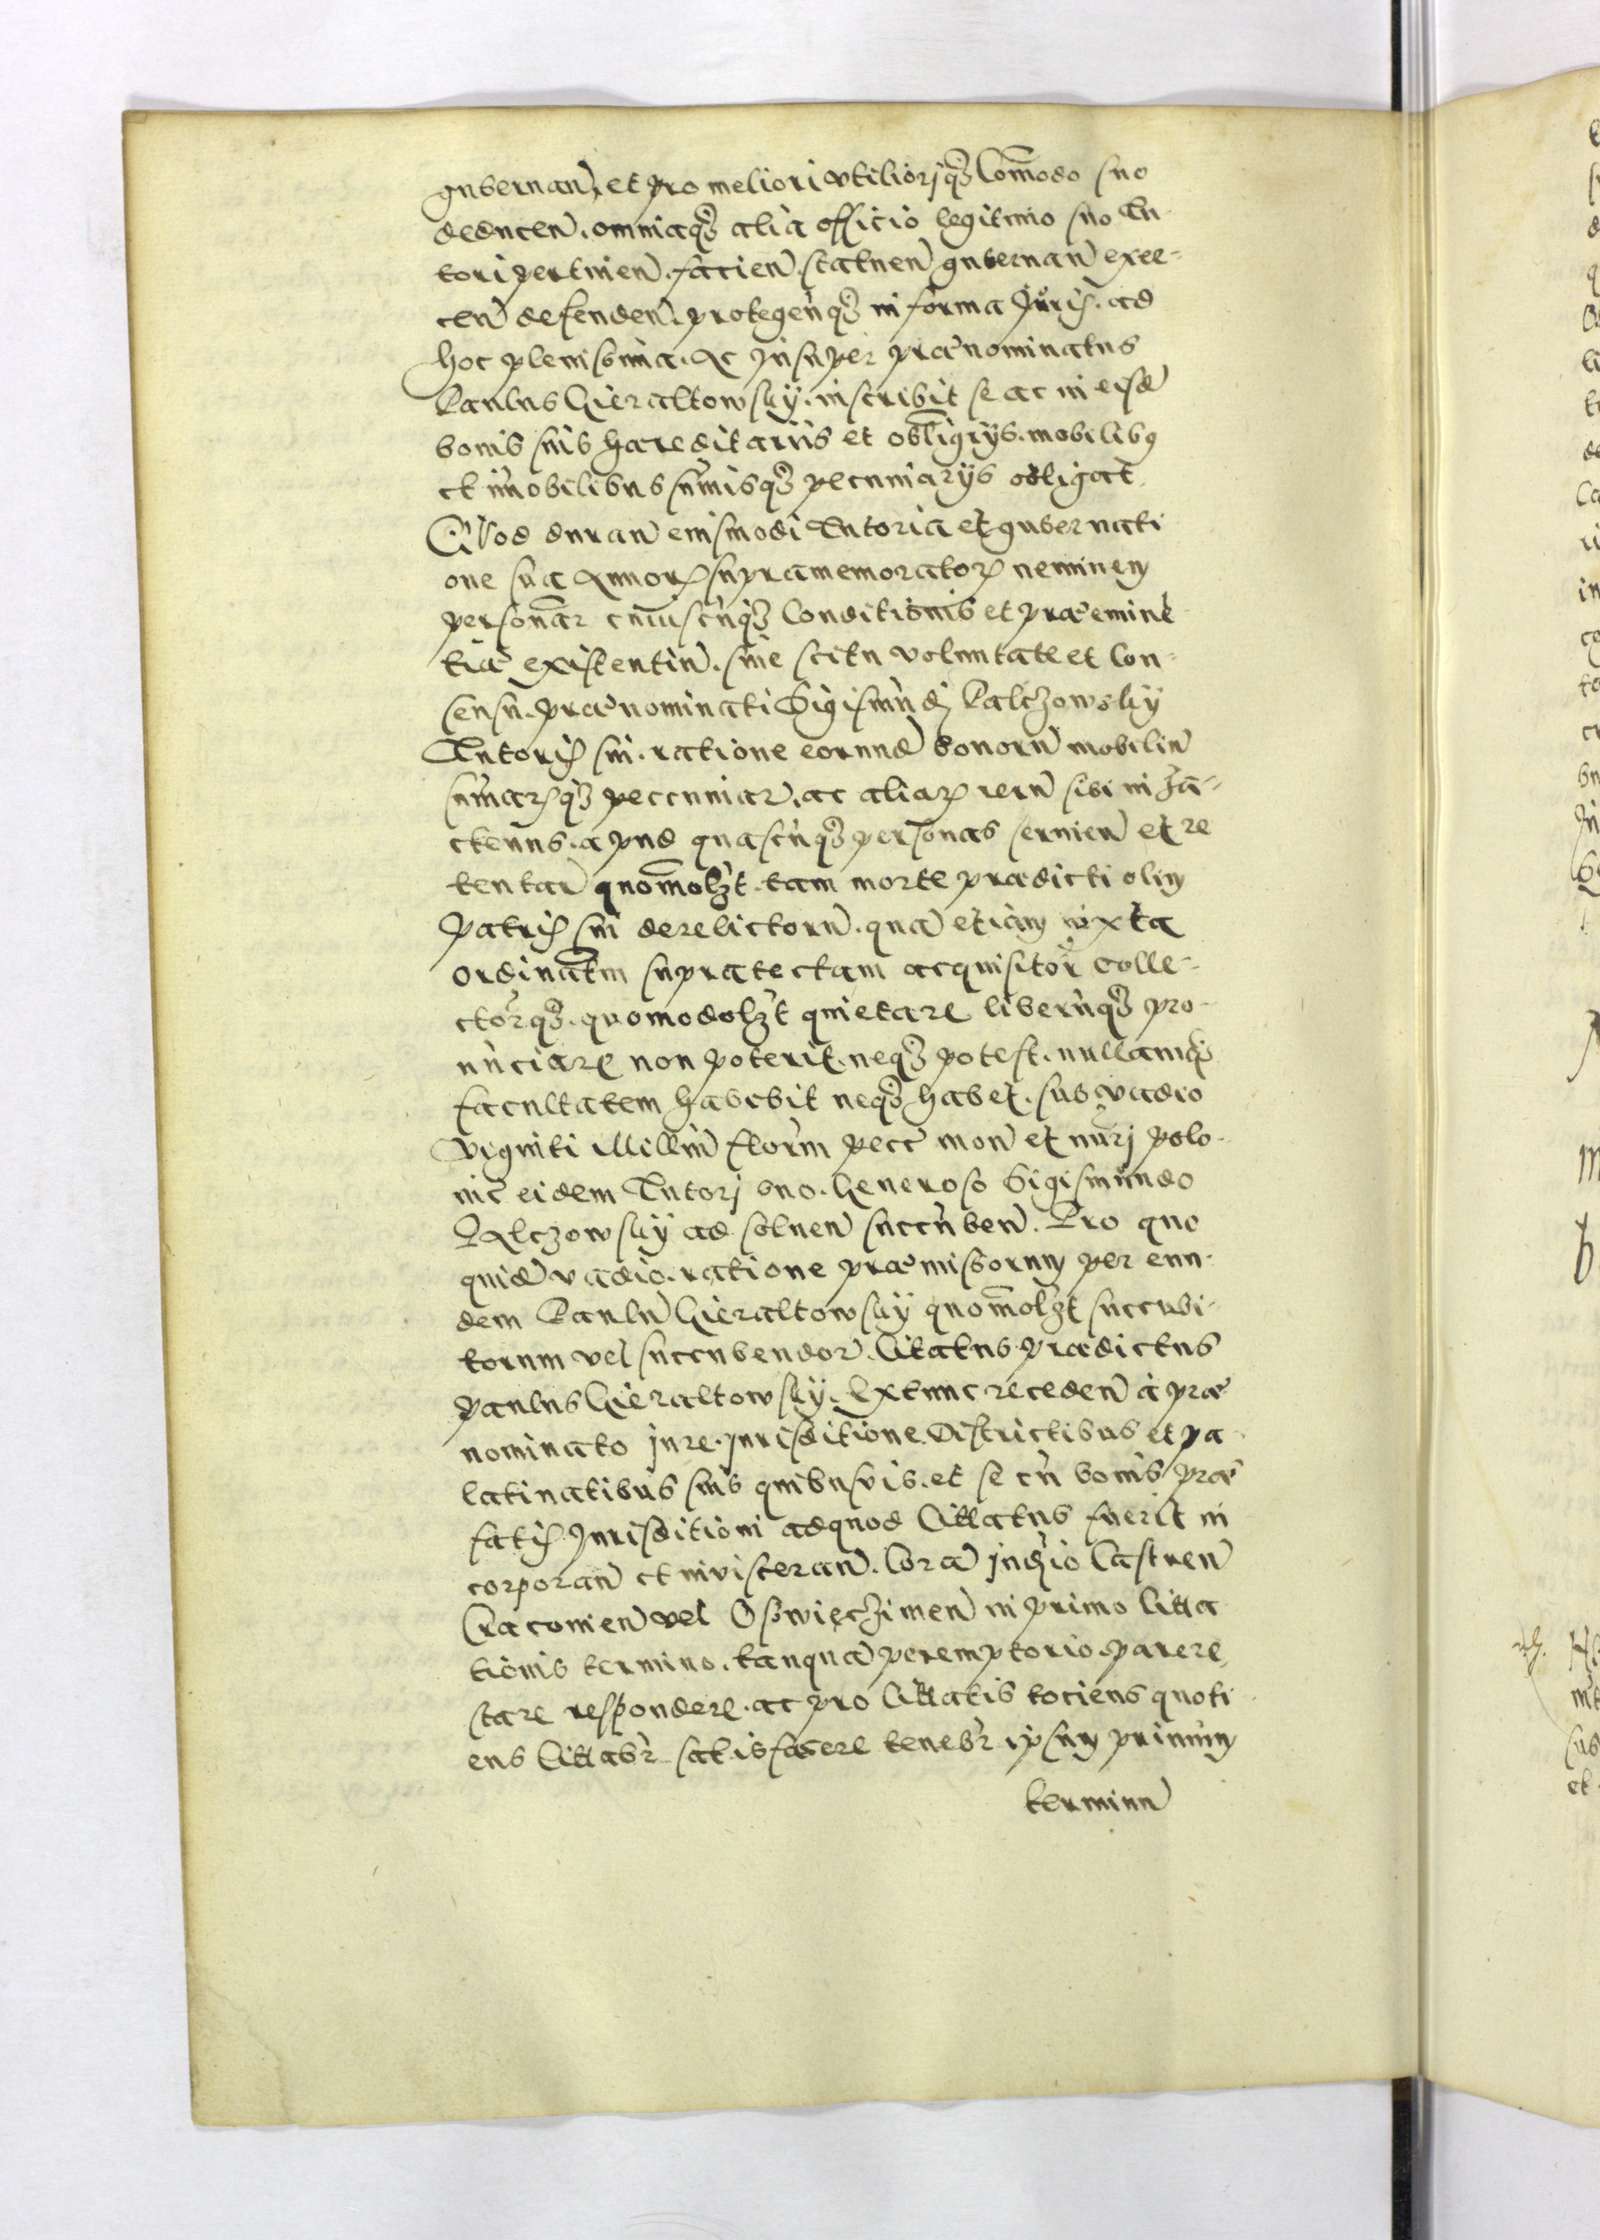 gubernan̄, et pro meliori utilioriq₃ Com̄odo suo
deducen̄. omniaq₃ alia officio legitimo suo Tu
tori pertinen̄. facien̄. statuen̄ gubernan̄ exer-
cen̄ defenden̄. protegen̄q₃ in forma Juris. ad
hoc plenissima. Ac Insuper prænominatus
Paulus Gieraltowsky. inscribit se ac in eisd̄
bonis suis hæreditariis et obligiys. mobilibꝰ
et im̄obilibus sum̄isq₃ pecuniarijs obligat
Quod duran̄ eiusmodi Tutoria et gubernati
one sua Annorꝝ supramemoratorꝝ neminem
personar̄ cuiuscūq₃ Conditionis et præemine
tiæ existentiū. sine scitu voluntate et Con-
sensu. prænominati Sigismūdj Palczowsky
Tutoris sui. ratione eorund̄ bonorū mobiliū
sum̄arꝝq₃ pecuniar̄. ac aliarꝝ rerū sibi in ha-
ctenus. apud quascūq₃ personas seruien̄ et re
tentar̄ quom̄olꝫt. tam morte prædicti olim
Patris sui derelictorū. quā etiam iuxta
ordinatm̄ supratectam acquisitor̄ Colle-
ctor̄q₃. quomodolꝫt quietare liberūq₃ pro-
nūciare non poterit. neq₃ potest. nullamq₃
facultatem habebit neq₃ habet. sub vadio
viginti Milliū flor̄m pecc̄ mon̄ et nūrj polo-
nic̄ eidem Tutorj suo. Generoso Sigismundo
Palczowsky ad soluen̄ succūben̄. Pro quo
quid̄ vadio. ratione præmissorum per eun-
dem Paulū Gieraltowsky quom̄olꝫt succubi-
torum vel succubendor̄. Citatus prædictus
Paulus Gieraltowsky. Extunc receden̄ à præ
nominato jure. Jurisditione. Districtibus et pa
latinatibus suis quibusvis. et se cū bonis præ
fatis Jurisditioni adquod Cittatus fuerit in
corporan̄ et invisceran̄. Corā Judicio Castren̄
Cracouien̄ vel Oswięczimen̄ in primo Citta
tionis termino. tanquā peremptorio. parere,
stare respondere. ac pro Cittatis tociens quoti
ens Cittabr̄ satisfacere tenebr̄ ipsum primum
terminū